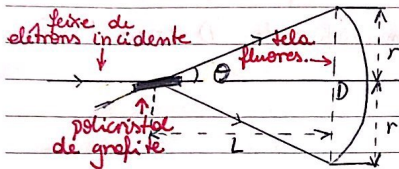 feixe de
elétrons incidente
tela
fluores.
θ
D
r
r
L
policristal
de grafite